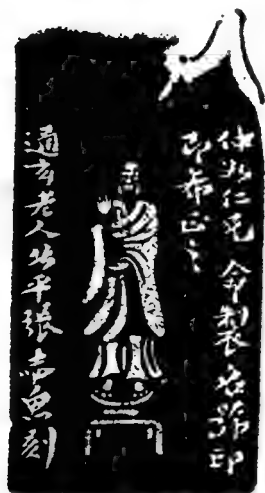 仲兆仁兄 命製名號印
即希正之
通玄老人北平張志魚刻